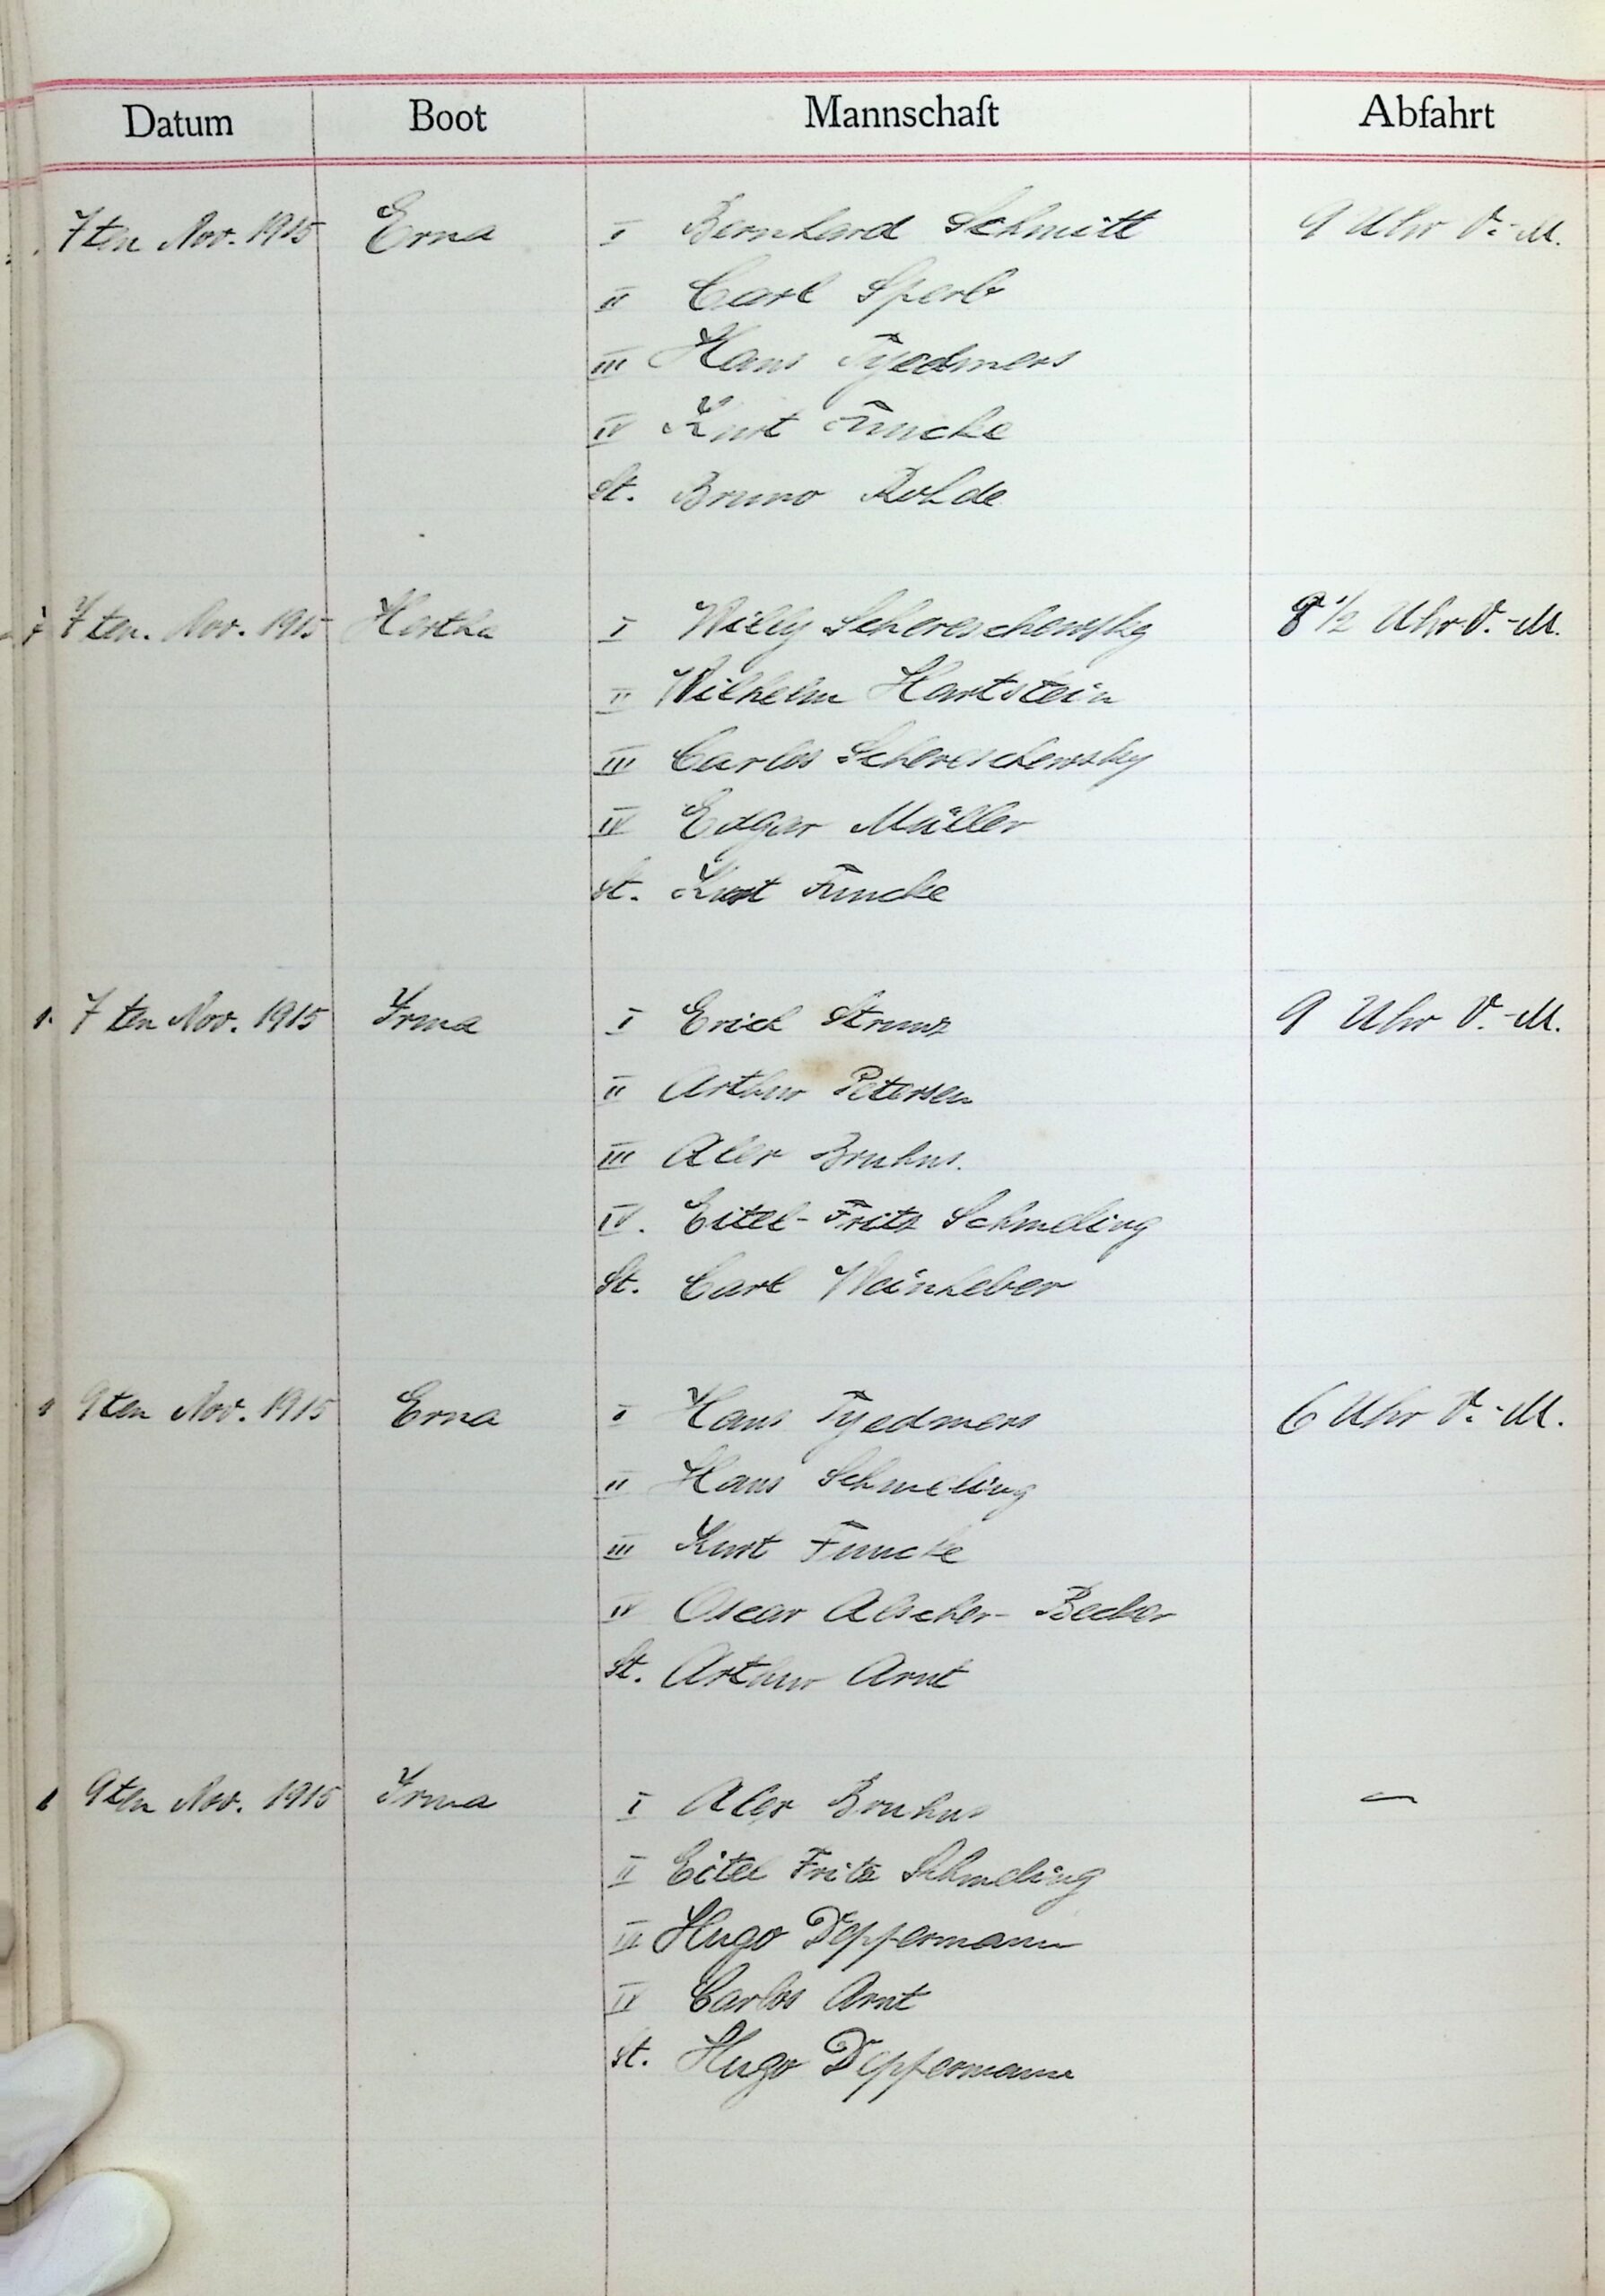 Datum Boot Mannschaft Abfahrt
7ten Nov. 1915 Erna I Bernhard Schmitt 9 Uhr V.-M.
II Carl Sperb
III Hans Tyedmers
IV Kurt Funcke
St. Bruno Rohde
7ten. Nov. 1915 Hertha I Willy Schereschewsky 8 1/2 Uhr V.-M.
II Wilhelm Hartstein
III Carlos Schereschewsky
IV Edgar Müller
St. Kurt Funcke
7ten Nov. 1915 Irma I Erich Strunz 9 Uhr V.-M.
II Arthur Petersen
III Alex Bruhns.
IV. Eitel-Fritz Schmeling
St. Carl Weinheber
9ten Nov. 1915 Erna I Hans Tyedmers 6 Uhr V.-M.
II Hans Schmeling
III Kurt Funcke
IV Oscar Alscher-Becker
St. Arthur Arnt
9ten Nov. 1915 Irma I Alex Bruhns —
II Eitel Fritz Schmeling
III Hugo Deppermann
IV Carlos Arnt
St. Hugo Deppermann